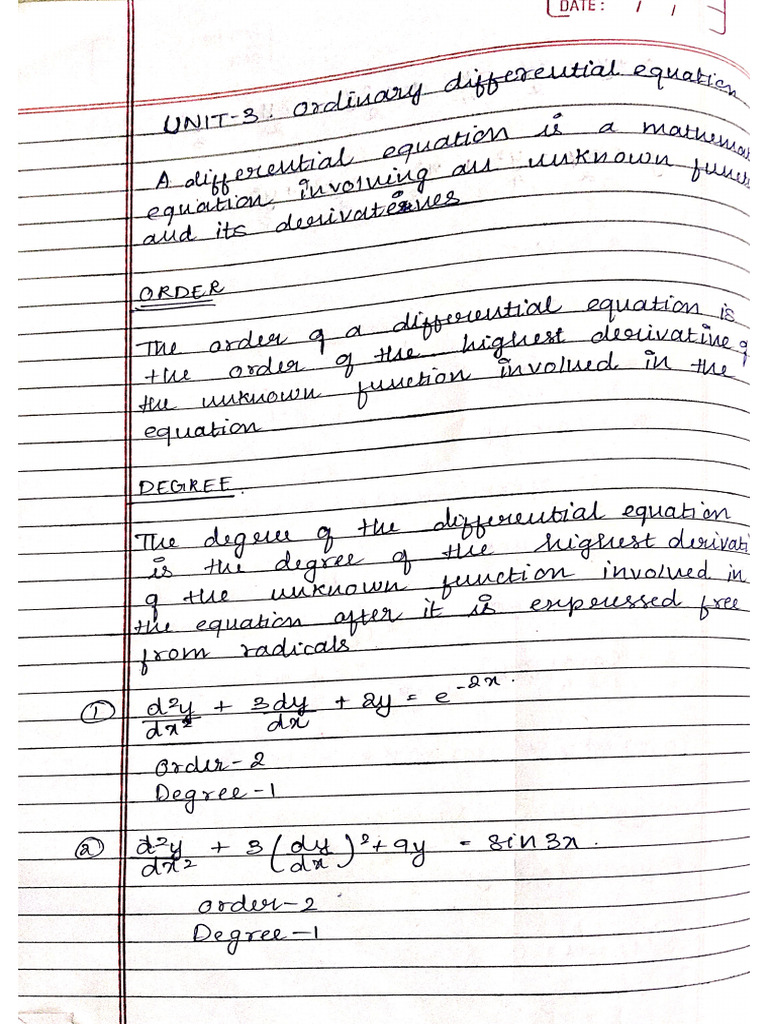 DATE: / /
UNIT-3. Ordinary differential equation
A differential equation is a mathemat
equation involving an unknown func
and its derivatives
ORDER
The order of a differential equation is
the order of the highest derivative of
the unknown function involved in the
equation
DEGREE.
The degree of the differential equation
is the degree of the highest derivati
of the unknown function involved in
the equation after it is expressed free
from radicals
① d²y/dx² + 3dy/dx + 2y = e^-2x.
Order-2
Degree-1
② d²y/dx² + 3(dy/dx)² + 9y = sin3x.
Order-2
Degree-1